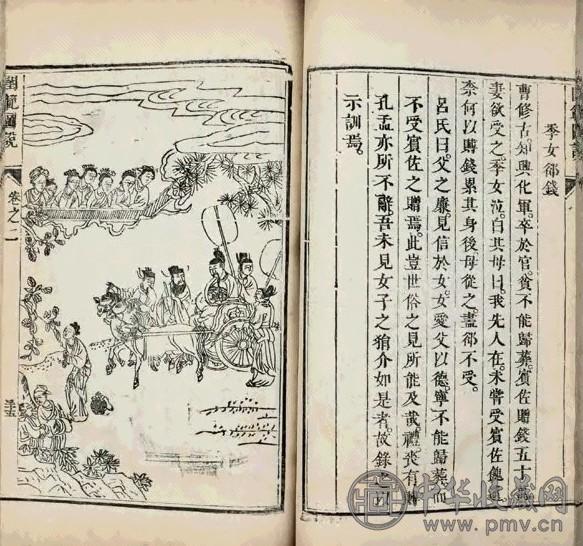 季女卻錢
曹修古知興化軍。卒於官。貧不能歸葬。賓佐賻錢五十萬
妻欲受之。季女泣。白其母曰。我先人在。未常受賓佐餽遺
柰何以賻錢累其身後。母從之。盡卻不受。
呂氏曰。父之廉。見信於女。女愛父以德。寧不能歸葬。而
不受賓佐之贈焉。此豈世俗之見所能及哉。禮喪有賻
孔孟亦所不辭。吾未見女子之狷介如是者。故錄之以
示訓焉。
閨範圖說
卷之二
中华收藏网
www.pmv.cn